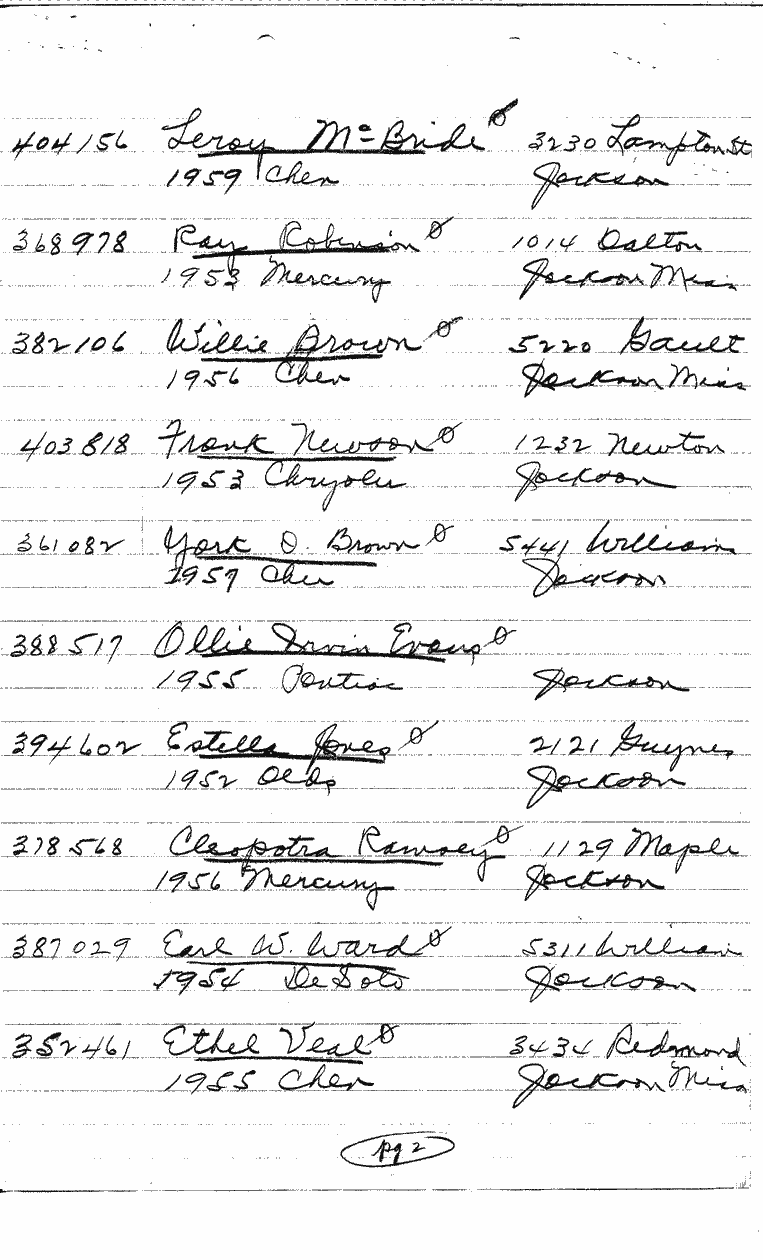 404156 Leroy McBride 3230 Lampton St
1959 Chev Jackson
368978 Ray Robinson 1014 Dalton
1953 Mercury Jackson Miss
382106 Willie Brown 5220 Gault
1956 Chev Jackson Miss
403818 Frank Newson 1232 Newton
1953 Chrysler Jackson
361082 York O. Brown 5441 William
1957 Chev Jackson
388517 Ollie Irvin Evans
1955 Pontiac Jackson
394602 Estella Jones 2121 Guynes
1952 Olds Jackson
378568 Cleopatra Ramsey 1129 Maple
1956 Mercury Jackson
387029 Earl W. Ward 5311 William
1954 DeSoto Jackson
352461 Ethel Veal 3434 Redmond
1955 Chev Jackson Miss
pg 2